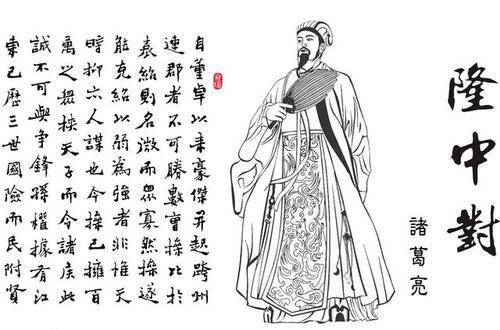 隆中對
諸葛亮
自董卓以來豪傑并起跨州
連郡者不可勝數曹操比於
袁紹則名微而眾寡然操遂
能克紹以弱為強者非惟天
時抑亦人謀也今操已擁百
萬之眾挾天子而令諸侯此
誠不可與爭鋒孫權據有江
東已歷三世國險而民附賢